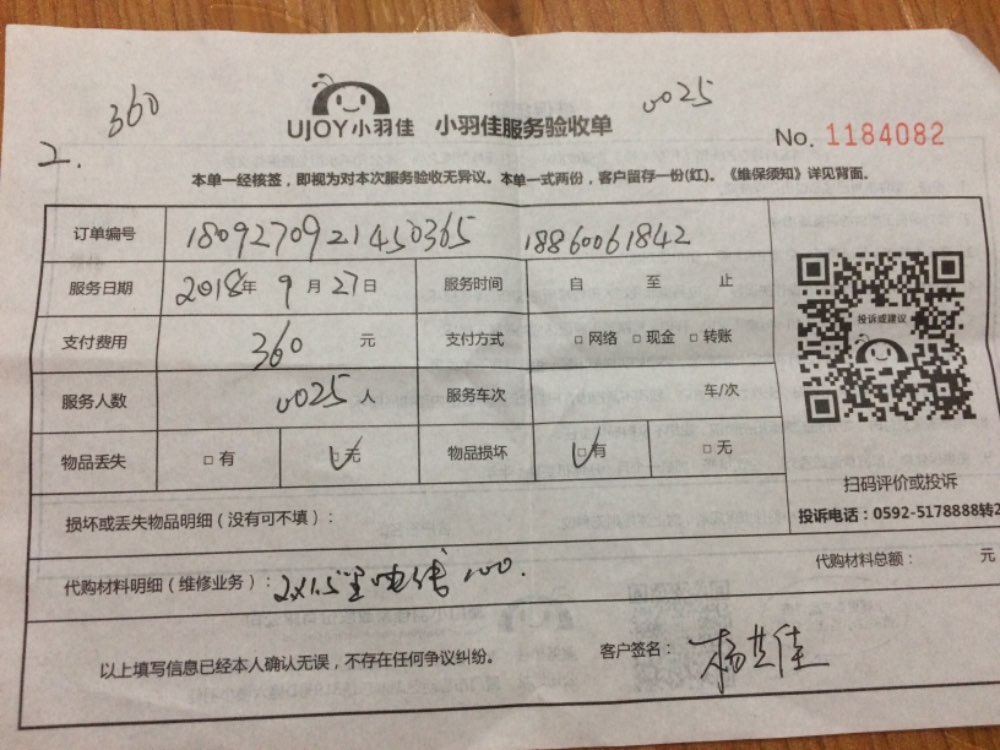 360
0025
2.
UJOY小羽佳 小羽佳服务验收单
No. 1184082
本单一经核签，即视为对本次服务验收无异议。本单一式两份，客户留存一份(红)。《维保须知》详见背面。
订单编号 1809270921450365 18860061842
服务日期 2018年 9月27日 服务时间 自 至 止
支付费用 360 元 支付方式 □ 网络 □ 现金 □ 转账
投诉或建议
服务人数 0025 人 服务车次 车/次
物品丢失 □ 有 □ 无 物品损坏 □ 有 □ 无
扫码评价或投诉
损坏或丢失物品明细（没有可不填）：
投诉电话：0592-5178888转2
代购材料明细（维修业务）：2x1.5 电线 100.
代购材料总额： 元
以上填写信息已经本人确认无误，不存在任何争议纠纷。
客户签名：杨 佳